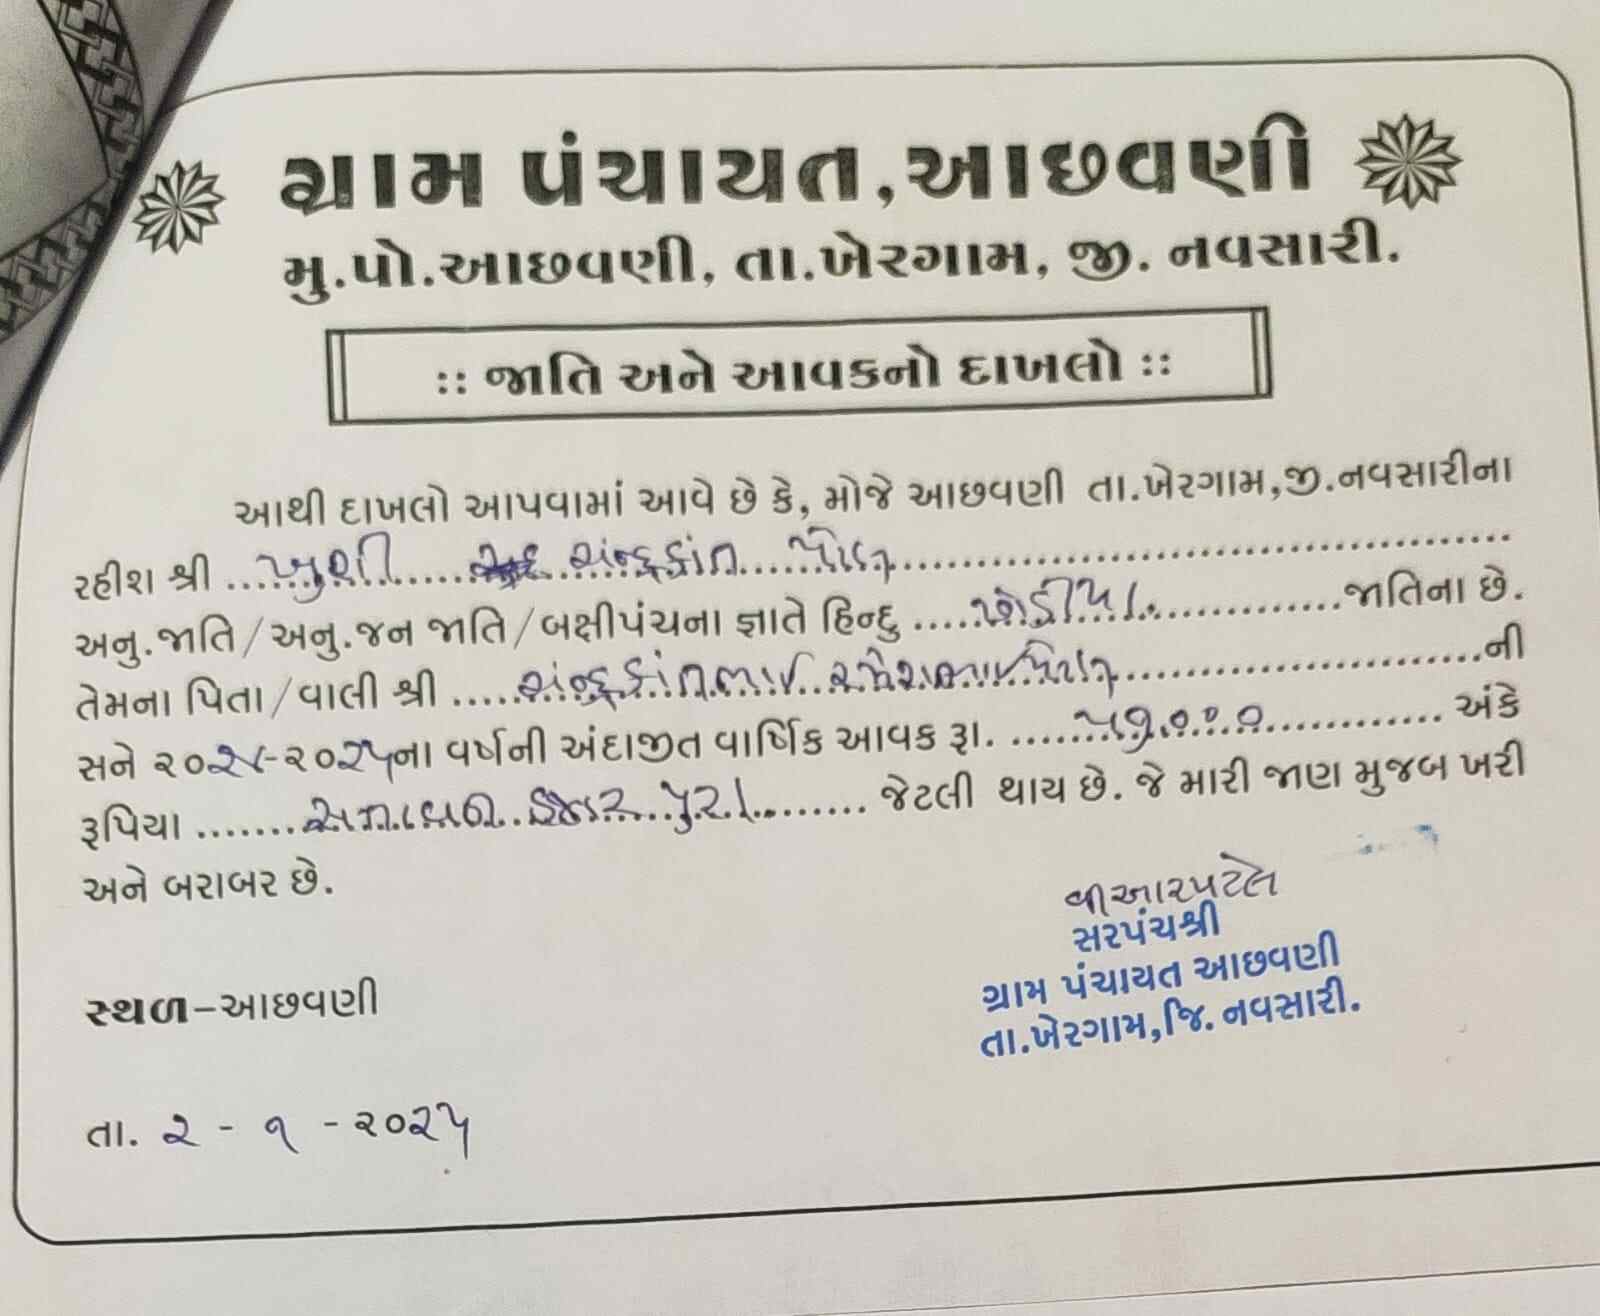 ગ્રામ પંચાયત, આછવણી
મુ.પો.આછવણી, તા.ખેરગામ, જી. નવસારી.
:: જાતિ અને આવકનો દાખલો ::
આથી દાખલો આપવામાં આવે છે કે, મોજે આછવણી તા.ખેરગામ,જી.નવસારીના
રહીશ શ્રી ....ખુશી.... ચંન્દ્રકાંત.... પટેલ....
અનુ.જાતિ/અનુ.જન જાતિ/બક્ષીપંચના જ્ઞાતે હિન્દુ .....ધોડીયા.....જાતિના છે.
તેમના પિતા/વાલી શ્રી .....ચંન્દ્રકાંતભાઈ રમેશભાઈ પટેલ.....ની
સને ૨૦૨૪-૨૦૨૫ના વર્ષની અંદાજીત વાર્ષિક આવક રૂા. .....૫૭૦૦૦..... અંકે
રૂપિયા .......સત્તાવન હજાર પુરા....... જેટલી થાય છે. જે મારી જાણ મુજબ ખરી
અને બરાબર છે.
વીઆરપટેલ
સરપંચશ્રી
ગ્રામ પંચાયત આછવણી
તા.ખેરગામ,જિ.નવસારી.
સ્થળ-આછવણી
તા. ૨ - ૧ - ૨૦૨૫